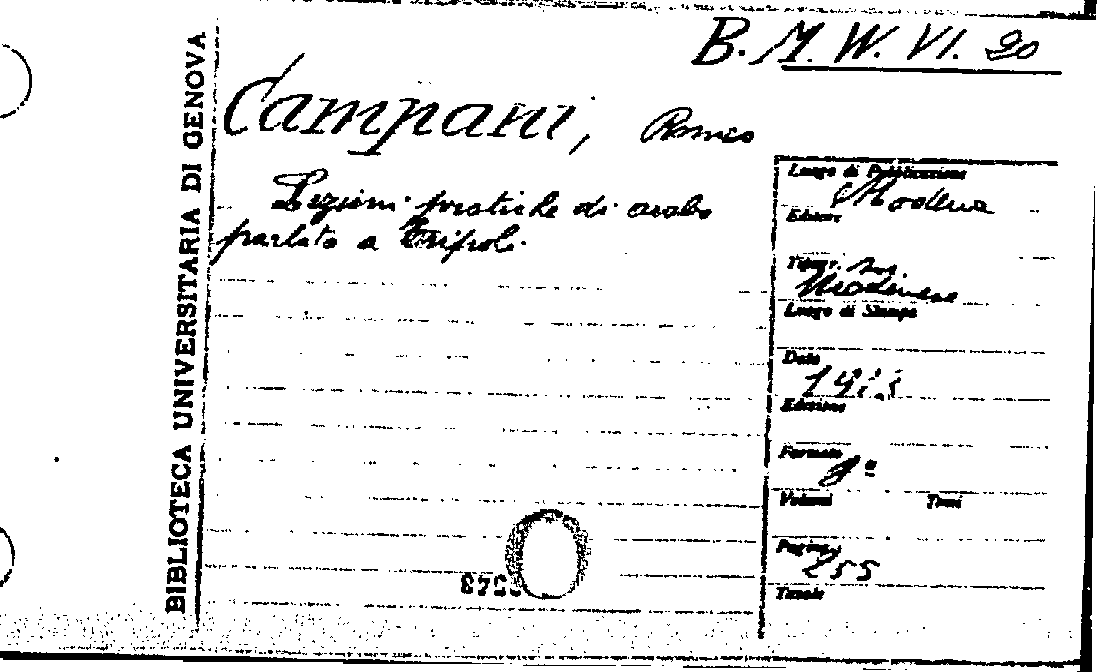 BIBLIOTECA UNIVERSITARIA DI GENOVA
B. M. W. VI. 20
Campani, Romeo
Lezioni pratiche di arabo
parlato a Tripoli.
Luogo di Pubblicazione
Modena
Editore
Tipogr.
Modenese
Luogo di Stampa
Data
Edizione
Formato
8º
Volumi Tomi
Pagine
255
Tavole